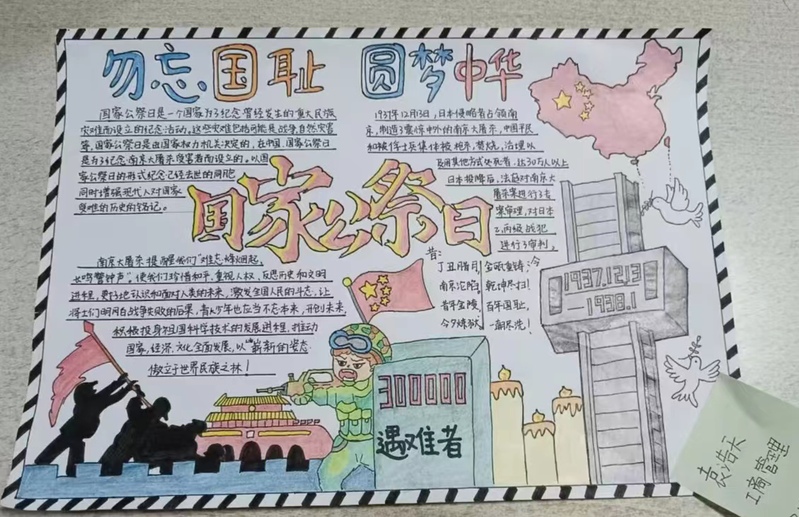 勿忘国耻 圆梦中华
国家公祭日是一个国家为了纪念曾经发生的重大民族
灾难而设立的纪念活动,这些灾难包括可能是战争,自然灾害
等,国家公祭日是由国家权力机关决定的,在中国,国家公祭日
是为了纪念南京大屠杀受害者而设立的。以国
家公祭日的形式纪念已经去世的同胞
同时增强现代人对国家
受难的历史的铭记。
1937年12月13日,日本侵略者占领南
京,制造了震惊中外的南京大屠杀,中国平民
和被俘士兵集体被枪杀,焚烧,活埋以
及用其他方式处死者,达30万人以上
日本投降后,法庭对南京大
屠杀案进行了立
案审理,对日本
乙丙级战犯
进行了审判。
国家公祭日
南京大屠杀提醒我们"难忘烽烟起,
长鸣警钟声",使我们珍惜和平,重视人权,反思历史和文明
进程,更好地认识和面对人类的未来,激发全国人民的斗志,让
将士们明白战争失败的后果,青少年也应当不忘本来,开创未来,
积极投身祖国科学技术的发展进程,推动
国家,经济,文化全面发展,以"崭新的姿态
傲立于世界民族之林!
昔:
丁丑腊月
南京沦陷
昔年金陵
今夕炼狱
今
金瓯重铸
乾坤尽扫
百年国耻,
一朝尽洗!
1937.12.13
1938.1
300000
遇难者
袁浩天
工商管理